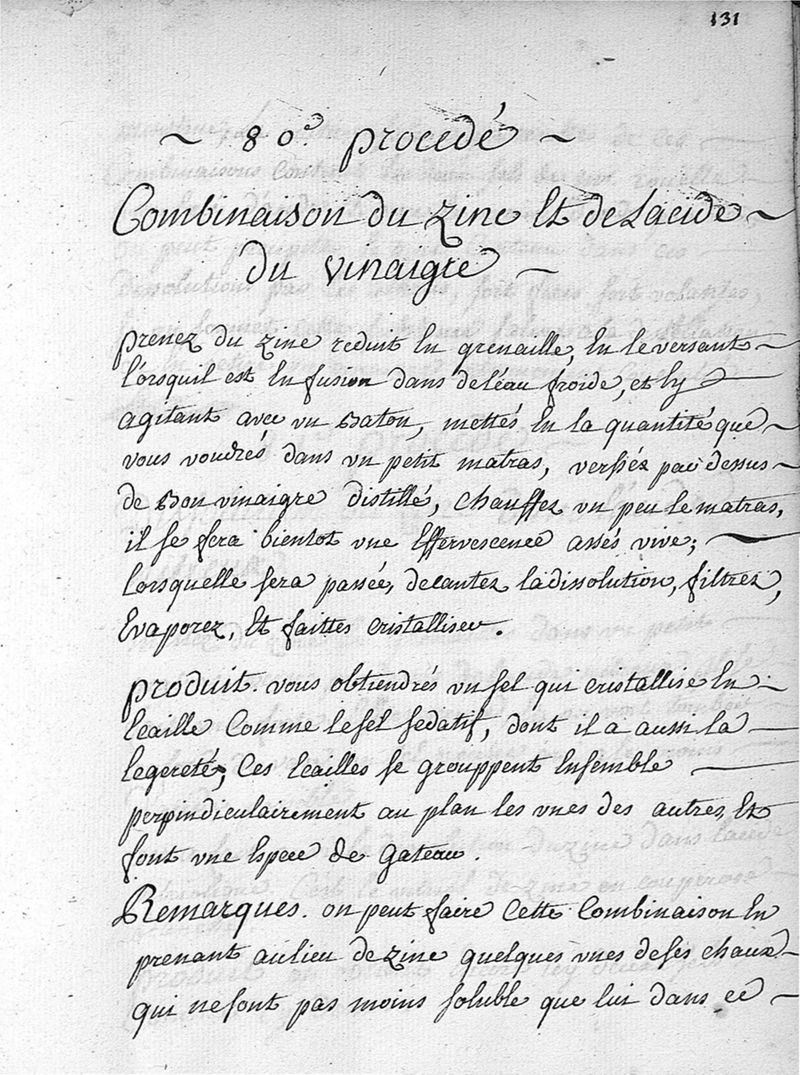 131
~ 80e procedé ~
Combinaison du zinc Et de Lacide ~
du vinaigre ~
prenez du zinc reduit En grenaille, En le versant
lorsquil est En fusion dans de léau froide, et ly
agitant avec un Baton, mettés En la quantité que
vous voudrés dans un petit matras, versés par dessus
de Bon vinaigre distillé, chauffez un peu le matras,
il se fera bientot une Effervescence assés vive;
lorsquelle sera passée, decantez la dissolution, filtrez,
Evaporez, Et faittes cristalliser.
produit. vous obtiendrés un sel qui cristallise En
Ecaille Comme le sel sedatif, dont il a aussi la
legereté, Ces Ecailles se grouppent Ensemble
perpindiculairement au plan les unes des autres, Et
font une Espece de gateau.
Remarques. on peut faire Cette Combinaison En
prenant au lieu de zinc quelques unes de ses chaux
qui ne sont pas moins soluble que lui dans ce